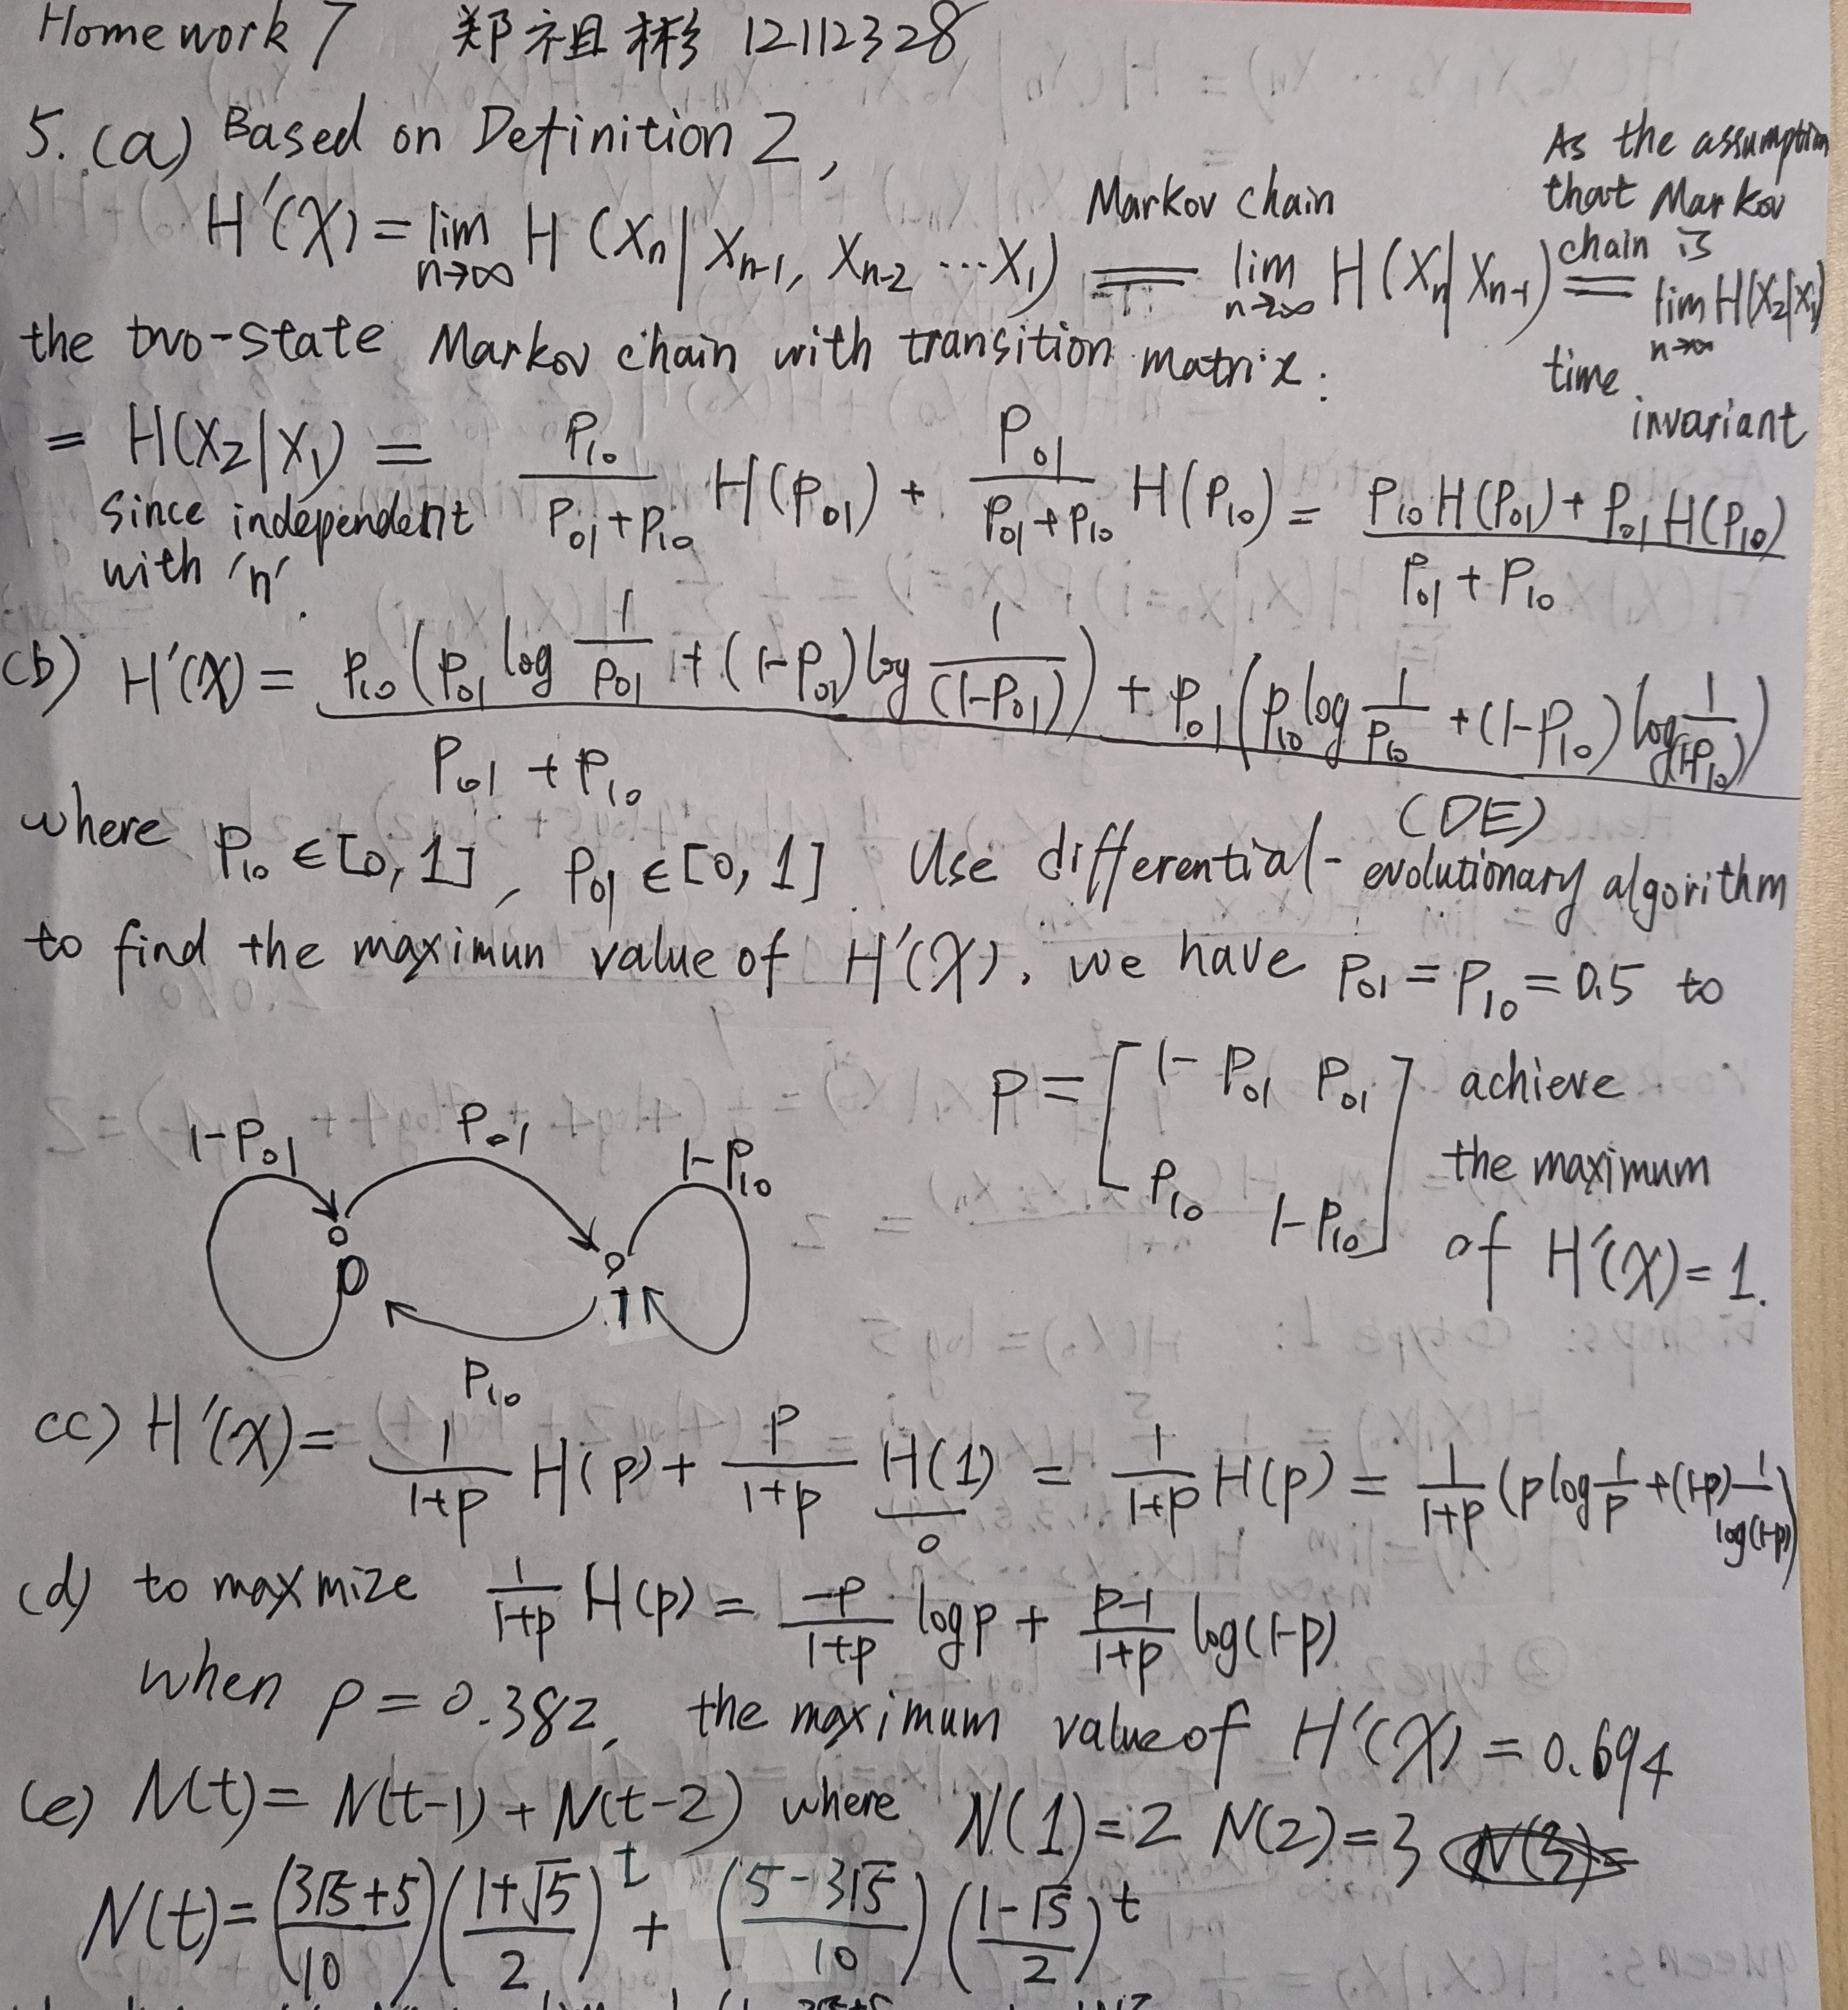 Homework 7 郑祖彬 12112328
5.(a) Based on Definition 2,
H'(X) = lim n→∞ H(Xn | Xn-1, Xn-2 ... X1) Markov chain = lim n→∞ H(Xn | Xn-1) = lim n→∞ H(X2|X1)
As the assumption
that Markov
chain is
time
invariant
the two-state Markov chain with transition matrix:
= H(X2|X1) = P10 / (P01+P10) H(P01) + P01 / (P01+P10) H(P10) = (P10 H(P01) + P01 H(P10)) / (P01 + P10)
since independent
with 'n'.
(b) H'(X) = (P10 (P01 log 1/P01 + (1-P01) log 1/(1-P01)) + P01 (P10 log 1/P10 + (1-P10) log 1/(1-P10))) / (P01 + P10)
where P10 ∈ [0, 1], P01 ∈ [0, 1] Use differential-evolutionary algorithm
(DE)
to find the maximun value of H'(X). we have P01 = P10 = 0.5 to
P = [1-P01 P01
P10 1-P10]
achieve
the maximum
of H'(X)=1.
1-P01 P01 1-P10
0 1
P10
(c) H'(X) = 1/(1+p) H(p) + p/(1+p) H(1) = 1/(1+p) H(p) = 1/(1+p) (p log 1/p + (1-p) 1/log(1-p))
0
(d) to maxmize 1/(1+p) H(p) = -p/(1+p) log p + (p-1)/(1+p) log(1-p)
when p = 0.382, the maximum value of H'(X) = 0.694
(e) N(t) = N(t-1) + N(t-2) where N(1)=2 N(2)=3
N(t) = ((3√5+5)/10) ((1+√5)/2)^t + ((5-3√5)/10) ((1-√5)/2)^t